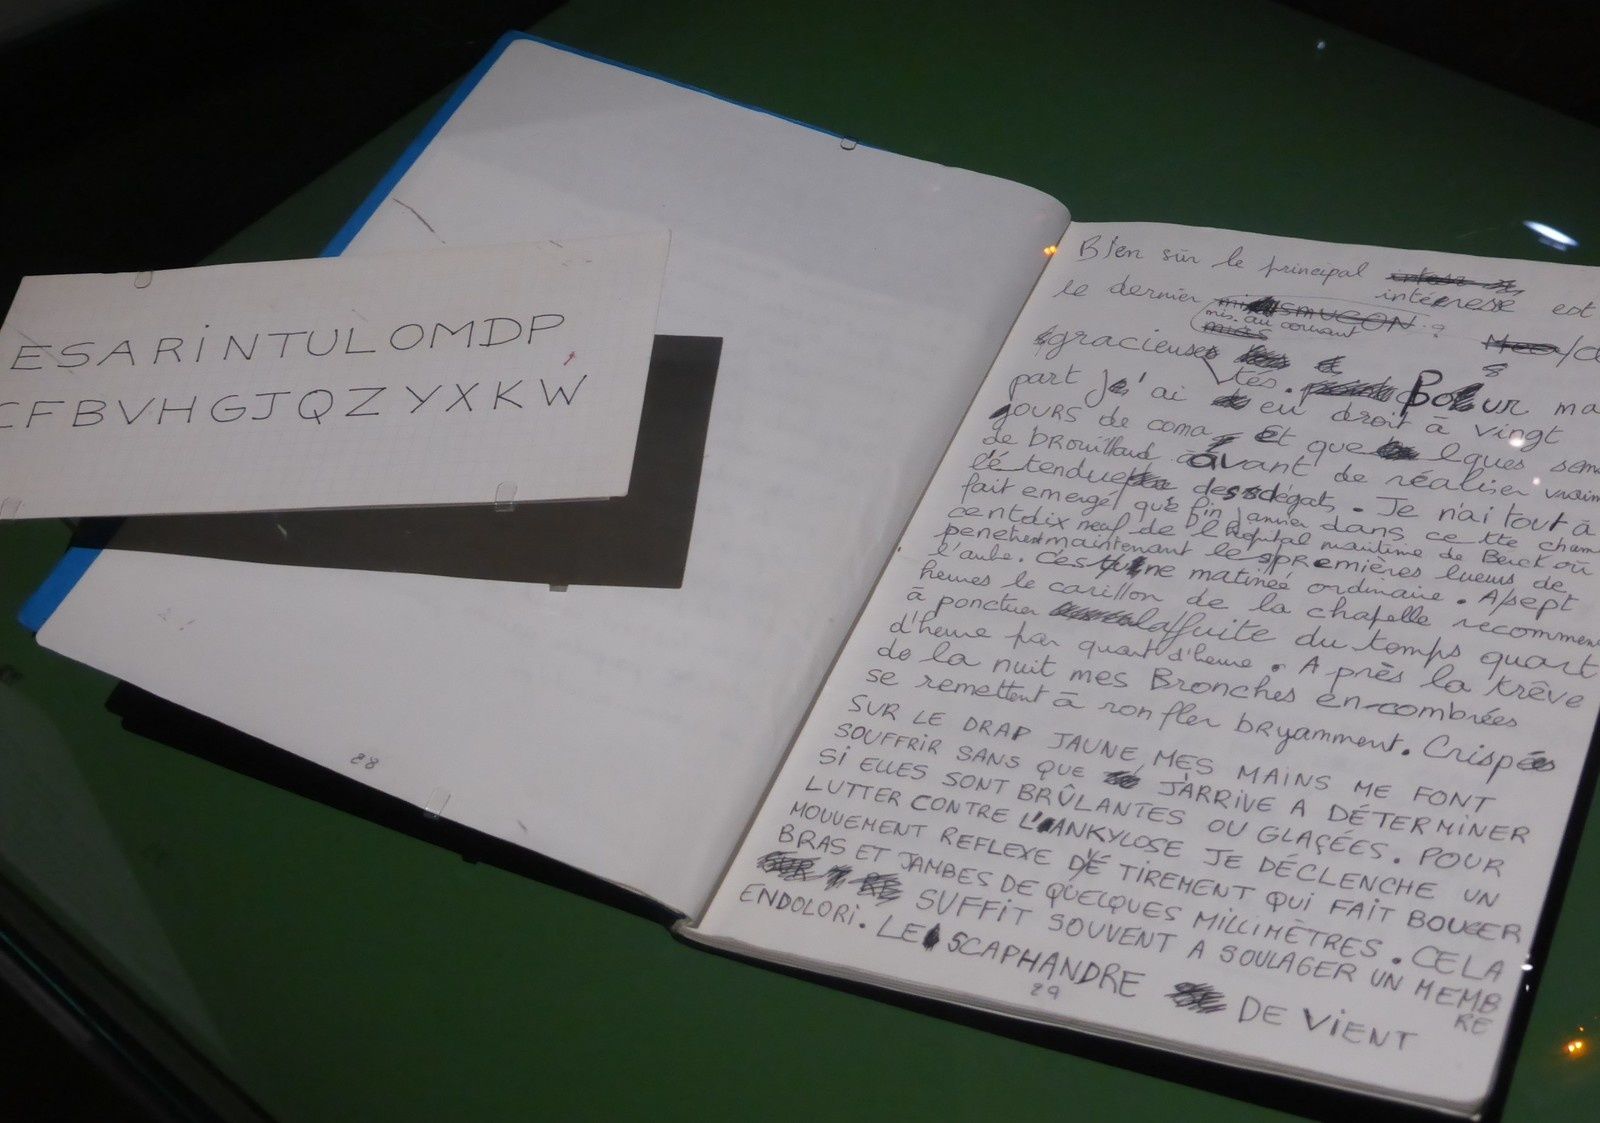 ESARiNTULOMDP
CFBVHGJQZYXKW
28
Bien sûr le principal intéressé est
le dernier
mis au courant
gracieuse
tés. Pour ma
part j'ai eu droit à vingt
jours de coma et quelques sem
de brouillard avant de réaliser vraim
l'étendue des dégats. Je n'ai tout à
fait emergé que fin janvier dans cette cham
centdix neuf de l'hopital maritime de Berck où
penetrent maintenant les premières lueurs de
l'aube. C'est une matinée ordinaire. A sept
heures le carillon de la chapelle recommen
à ponctuer la fuite du temps quart
d'heure par quart d'heure. Après la trêve
de la nuit mes Bronches en-combrées
se remettent à ronfler bryamment. Crispées
SUR LE DRAP JAUNE MES MAINS ME FONT
SOUFFRIR SANS QUE J'ARRIVE A DÉTERMINER
SI ELLES SONT BRÛLANTES OU GLAÇÉES. POUR
LUTTER CONTRE L'ANKYLOSE JE DÉCLENCHE UN
MOUVEMENT REFLEXE DE TIREMENT QUI FAIT BOUGER
BRAS ET JAMBES DE QUELQUES MILLIMÈTRES. CELA
SUFFIT SOUVENT A SOULAGER UN MEMB
RE
ENDOLORI. LE SCAPHANDRE DE VIENT
29